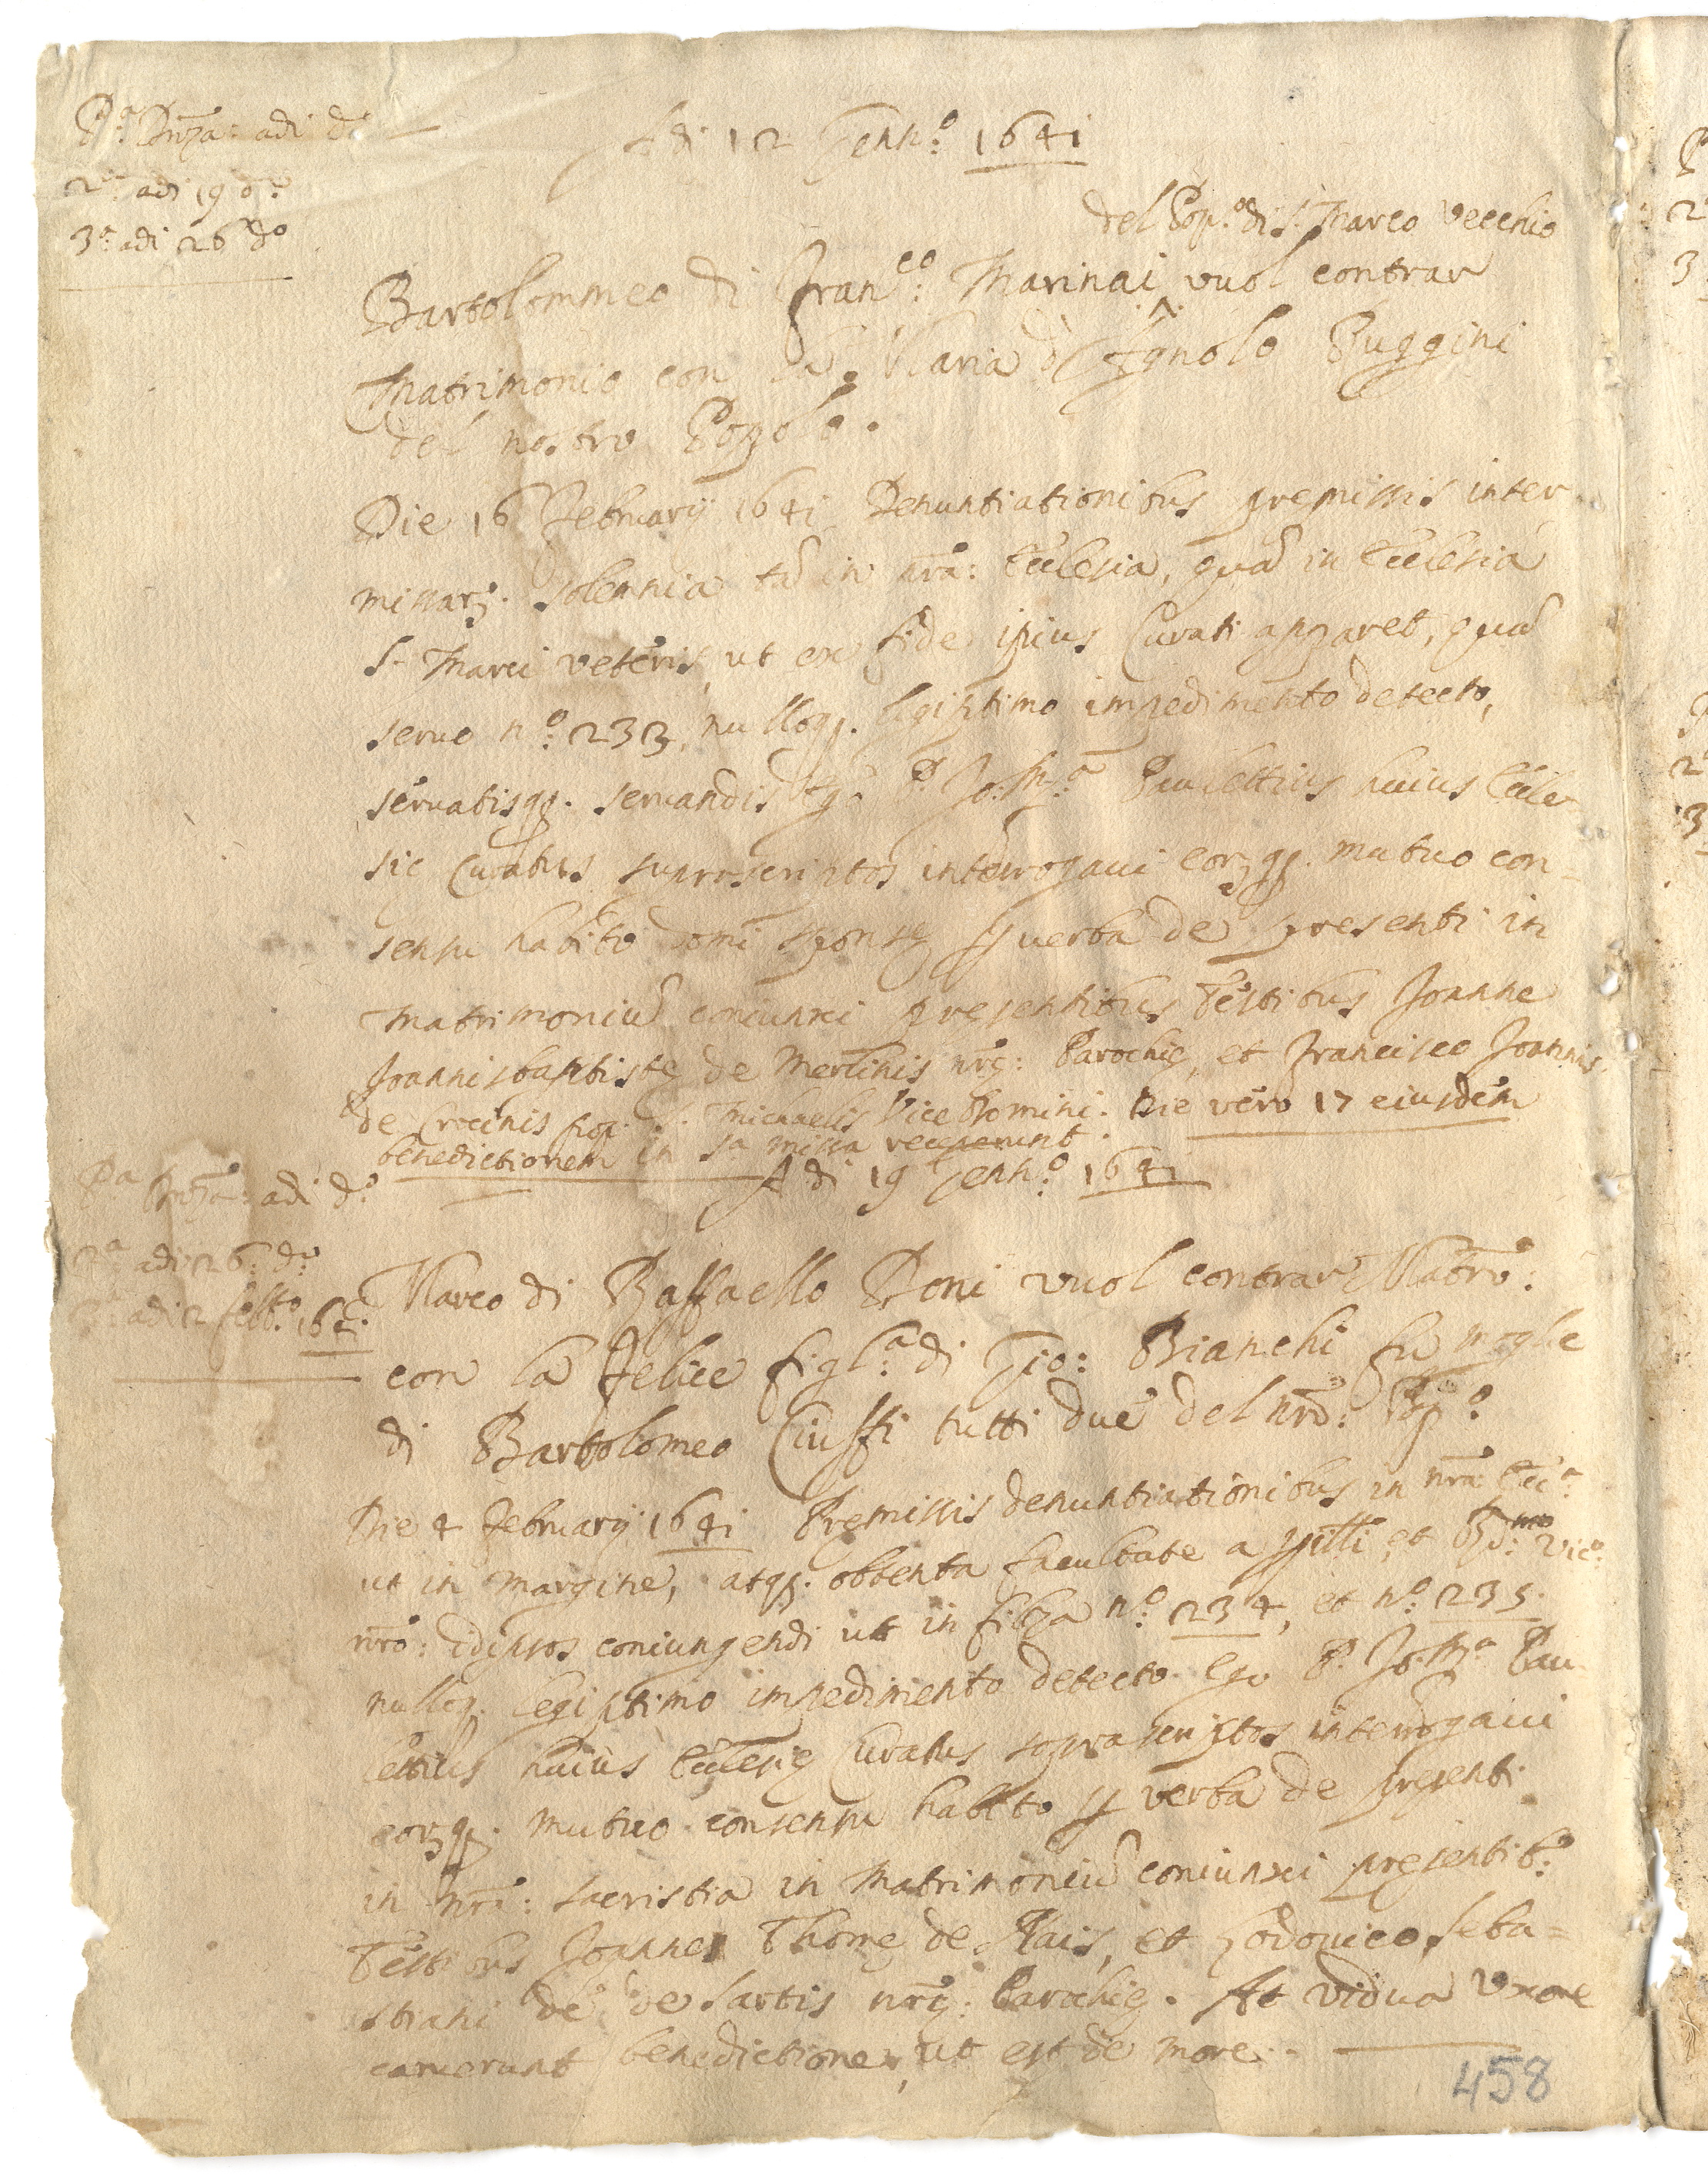 Pª Dnza: adi dº
2ª adi 19 dº
3ª adi 26 dº
Adi 12 Genn.º 1641
del Pop.º di S. Marco Vecchio
Bartolommeo di Fran.co Marinai vuol contrar
Matrimonio con la Maria d'Agnolo Puggini
del nostro Popolo.
Die 16 February 1641 Denuntiationibus premissis inter
missarz. solemnia tũ in nrã: Ecclesia, quã in Ecclesia
S. Marci veteris, ut ex fide ipius Curati apparet, quã
seruo n.º 233, nulloq. legiptimo impedimento detecto,
seruatisq. seruandis Ego P. Jo: Bª Paulettius huius Eccle
sie Curatus suprascriptos interrogaui eorzq. mutuo con=
sensu habito domi sponse p verba de presenti in
Matrimoniũ coniunxi presentibus Testibus Joanne
Joannisbaptiste de Mertinis nrẽ: Parochie, et Francisco Joannis
de Crocinis pop. S. Michaelis Vice Domini. Die vero 17 eiusdem
benedictionem in sa missa receperunt.
Pa Dnza: adi d.º
2ª adi 26. dº
3ª adi 2 febb.º 1641
Adi 19 Genn.º 1641
Marco di Raffaello Doni vuol contrar Matrõ:
con la Felice figl.ª di Gio: Bianchi fu moglie
di Bartolomeo Ciuffi tutti due del nrõ: Pop.º
Die 4 February 1641 Premissis denuntiationibus in nrã Ecc.ª
ut in margine, atq. obtenta facultate a pilli, et Rd.mo Vic.º
nrõ: idipsos coniungendi utt in filza n.º 234, et n.º 235.
nulloq. legiptimo impedimento detecto Ego P. Jo: Bª Pau
lettius huius Ecclesie Curatus soprascriptos interrogaui
eorzq. mutuo consensu habito p verba de presenti
in nrã: sacristia in Matrimoniũ coniunxi presentib.º
Testibus Joanne Thome de Nais, et Lodouico Seba=
stiani de de Sartis nrẽ: Parochie. At vidua Uxore
caruerunt benedictione, ut est de more.
458